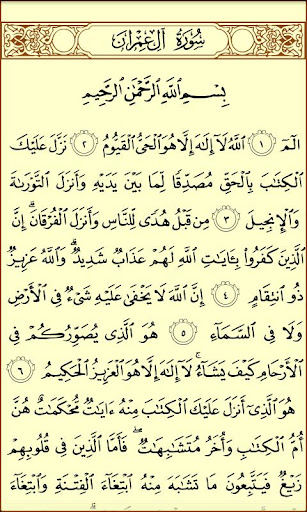 سُورَةُ آلِ عِمْرَان
بِسْمِ اللَّهِ الرَّحْمَٰنِ الرَّحِيمِ
الٓمٓ ﴿١﴾ اللَّهُ لَآ إِلَٰهَ إِلَّا هُوَ الْحَيُّ الْقَيُّومُ ﴿٢﴾ نَزَّلَ عَلَيْكَ
الْكِتَابَ بِالْحَقِّ مُصَدِّقًا لِّمَا بَيْنَ يَدَيْهِ وَأَنزَلَ التَّوْرَىٰةَ
وَالْإِنجِيلَ ﴿٣﴾ مِن قَبْلُ هُدًى لِّلنَّاسِ وَأَنزَلَ الْفُرْقَانَ ۗ إِنَّ
الَّذِينَ كَفَرُوا بِـَٔايَاتِ اللَّهِ لَهُمْ عَذَابٌ شَدِيدٌ ۗ وَاللَّهُ عَزِيزٌ
ذُو انتِقَامٍ ﴿٤﴾ إِنَّ اللَّهَ لَا يَخْفَىٰ عَلَيْهِ شَىْءٌ فِى الْأَرْضِ
وَلَا فِى السَّمَآءِ ﴿٥﴾ هُوَ الَّذِى يُصَوِّرُكُمْ فِى
الْأَرْحَامِ كَيْفَ يَشَآءُ ۚ لَآ إِلَٰهَ إِلَّا هُوَ الْعَزِيزُ الْحَكِيمُ ﴿٦﴾
هُوَ الَّذِى أَنزَلَ عَلَيْكَ الْكِتَابَ مِنْهُ ءَايَاتٌ مُّحْكَمَاتٌ هُنَّ
أُمُّ الْكِتَابِ وَأُخَرُ مُتَشَابِهَاتٌ ۖ فَأَمَّا الَّذِينَ فِى قُلُوبِهِمْ
زَيْغٌ فَيَتَّبِعُونَ مَا تَشَابَهَ مِنْهُ ابْتِغَآءَ الْفِتْنَةِ وَابْتِغَآءَ